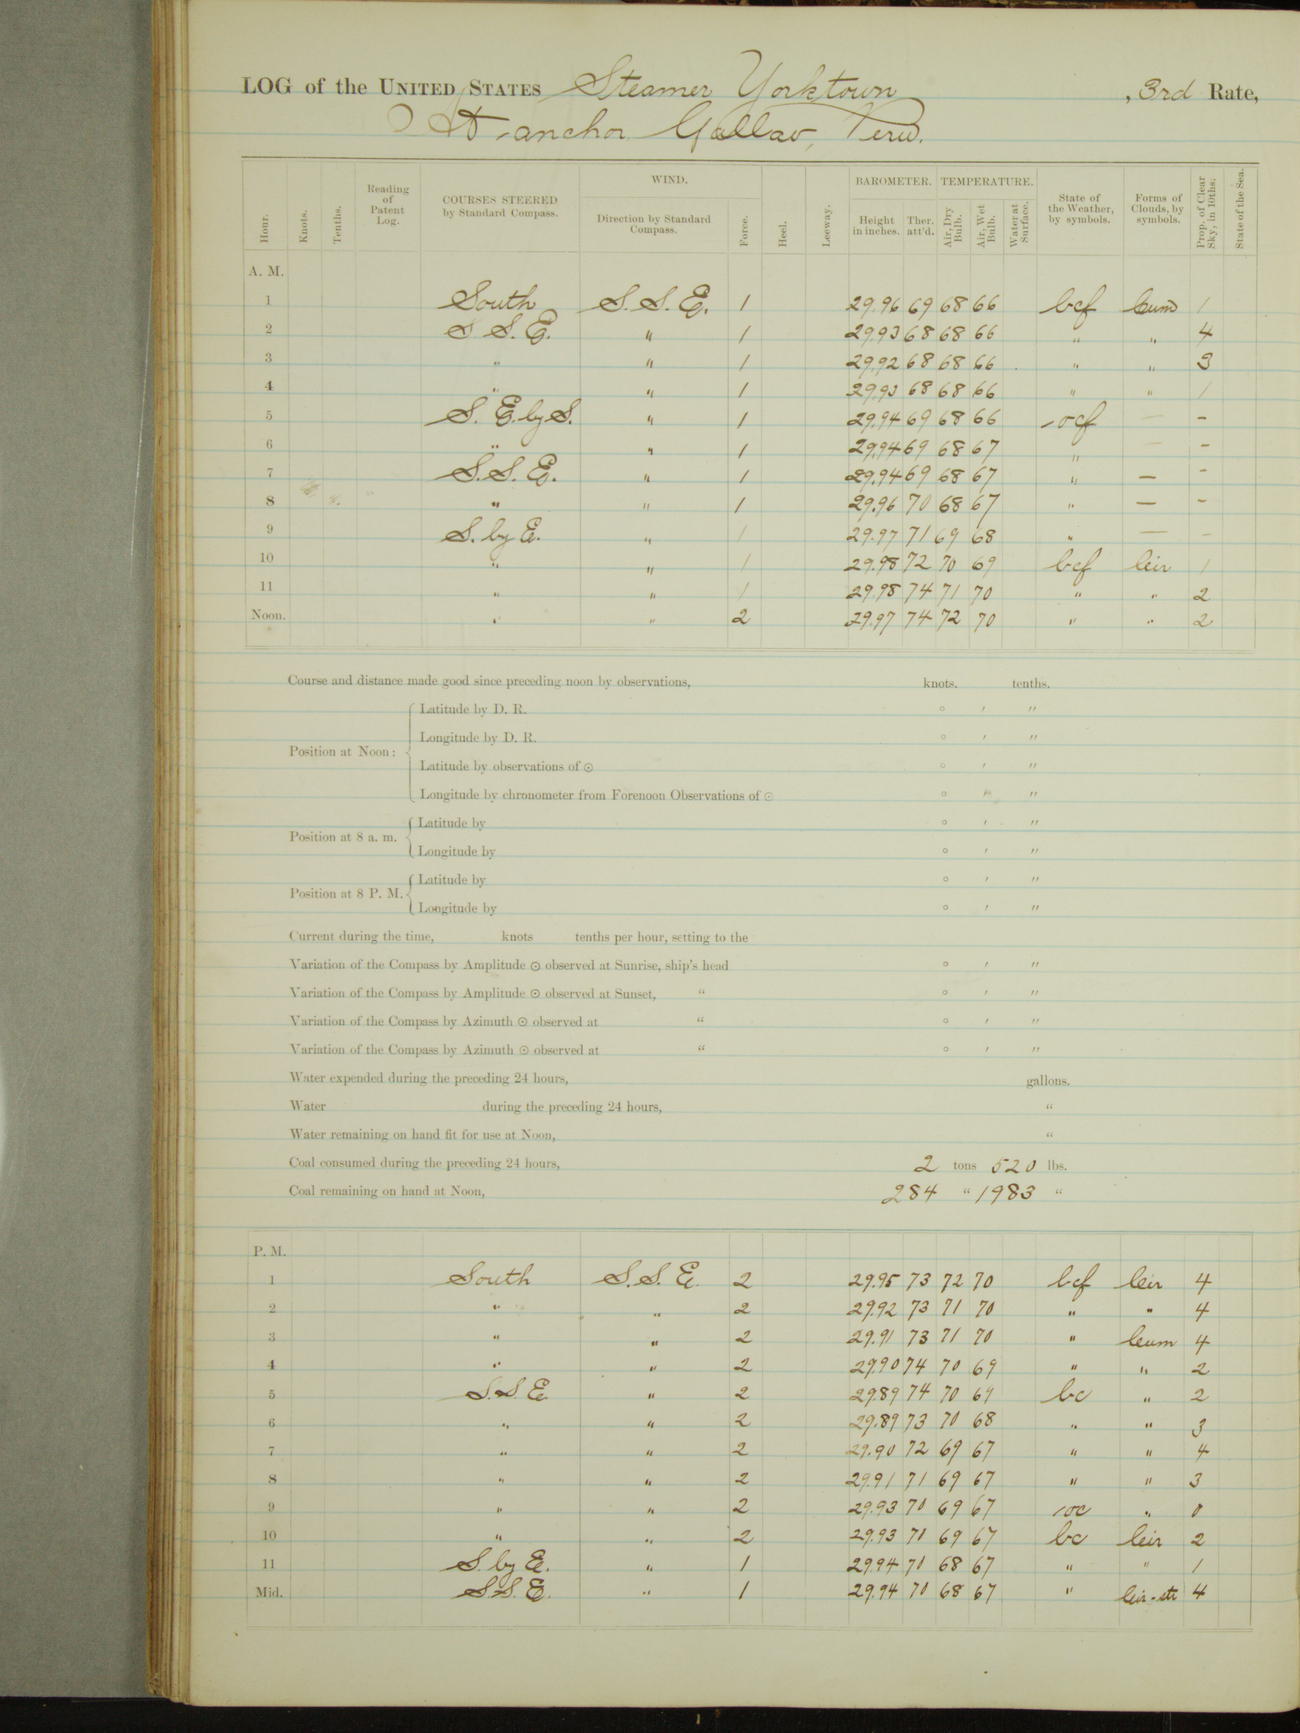 LOG of the UNITED STATES Steamer Yorktown, 3rd Rate,
At anchor Callao, Peru.
Hour. Knots. Tenths. Reading of Patent Log. COURSES STEERED by Standard Compass. WIND. Direction by Standard Compass. Force. Heel. Leeway. BAROMETER. Height in inches. Ther. att'd. TEMPERATURE. Air, Dry Bulb. Air, Wet Bulb. Water at Surface. State of the Weather, by symbols. Forms of Clouds, by symbols. Prop. of Clear Sky, in 10ths. State of the Sea.
A. M.
1 South S. S. E. 1 29.96 69 68 66 bcf cum 1
2 S S. E. " 1 29.93 68 68 66 " " 4
3 " " 1 29.92 68 68 66 " " 3
4 " " 1 29.93 68 68 66 " " 1
5 S. E. by S. " 1 29.94 69 68 66 ocf — -
6 " " 1 29.94 69 68 67 " — -
7 S. S. E. " 1 29.94 69 68 67 " — -
8 " " 1 29.96 70 68 67 " — -
9 S. by E. " 1 29.97 71 69 68 " — -
10 " " 1 29.98 72 70 69 bcf cir 1
11 " " 1 29.98 74 71 70 " " 2
Noon. " " 2 29.97 74 72 70 " " 2
Course and distance made good since preceding noon by observations, knots. tenths.
Position at Noon:
Latitude by D. R. ° ′ ″
Longitude by D. R. ° ′ ″
Latitude by observations of ⊙ ° ′ ″
Longitude by chronometer from Forenoon Observations of ⊙ ° ′ ″
Position at 8 a. m.
Latitude by ° ′ ″
Longitude by ° ′ ″
Position at 8 P. M.
Latitude by ° ′ ″
Longitude by ° ′ ″
Current during the time, knots tenths per hour, setting to the
Variation of the Compass by Amplitude ⊙ observed at Sunrise, ship's head ° ′ ″
Variation of the Compass by Amplitude ⊙ observed at Sunset, " ° ′ ″
Variation of the Compass by Azimuth ⊙ observed at " ° ′ ″
Variation of the Compass by Azimuth ⊙ observed at " ° ′ ″
Water expended during the preceding 24 hours, gallons.
Water during the preceding 24 hours, "
Water remaining on hand fit for use at Noon, "
Coal consumed during the preceding 24 hours, 2 tons 520 lbs.
Coal remaining on hand at Noon, 284 " 1983 "
P. M.
1 South S. S. E. 2 29.95 73 72 70 bcf cir 4
2 " " 2 29.92 73 71 70 " " 4
3 " " 2 29.91 73 71 70 " cum 4
4 " " 2 29.90 74 70 69 " " 2
5 S. S. E. " 2 29.89 74 70 69 bc " 2
6 " " 2 29.89 73 70 68 " " 3
7 " " 2 29.90 72 69 67 " " 4
8 " " 2 29.91 71 69 67 " " 3
9 " " 2 29.93 70 69 67 oc " 0
10 " " 2 29.93 71 69 67 bc cir 2
11 S. by E. " 1 29.94 71 68 67 " " 1
Mid. S. S. E. " 1 29.94 70 68 67 " cir-str 4